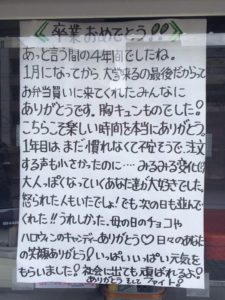 卒業おめでとう!!
あっと言う間の4年間でしたね。
1月になってから 大宮来るの最後だからって
お弁当買いに来てくれたみんなに
ありがとうです。胸キュンものでした!
こちらこそ楽しい時間を本当にありがとう。
1年目は、まだ慣れなくて不安そうで、注文
する声も小さかったのに…みるみる変化して
大人っぽくなっていくあなた達が大好きでした。
怒られた人もいたでしょ!でも次の日も並んで
くれた!!うれしかった。母の日のチョコや
ハロウィンのキャンディーありがとう♡日々のあなた達
の笑顔ありがとう!いっぱいいっぱい元気を
もらいました!社会に出ても頑ばれるよ!
ありがとう そして ファイト!